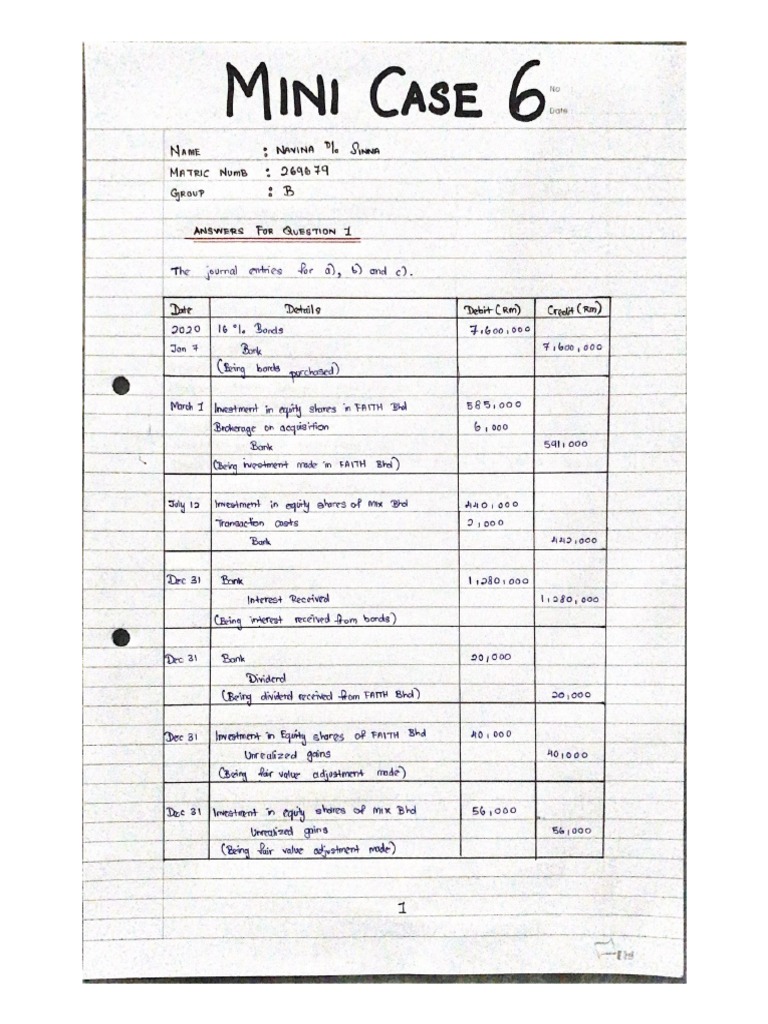 MINI CASE 6
No
Date
NAME : NAVINA D/O SINNA
MATRIC NUMB : 269679
GROUP : B
ANSWERS FOR QUESTION 1
The journal entries for a), b) and c).
Date Details Debit (RM) Credit (RM)
2020 16 % Bonds 7,600,000
Jan 7 Bank 7,600,000
(Being bonds purchased)
March 1 Investment in equity shares in FAITH Bhd 585,000
Brokerage on acquisition 6,000
Bank 591,000
(Being investment made in FAITH Bhd)
July 12 Investment in equity shares of MIX Bhd 440,000
Transaction costs 2,000
Bank 442,000
Dec 31 Bank 1,280,000
Interest Received 1,280,000
(Being interest received from bonds)
Dec 31 Bank 20,000
Dividend
(Being dividend received from FAITH Bhd) 20,000
Dec 31 Investment in Equity shares of FAITH Bhd 40,000
Unrealized gains 40,000
(Being fair value adjustment made)
Dec 31 Investment in equity shares of MIX Bhd 56,000
Unrealized gains 56,000
(Being fair value adjustment made)
1